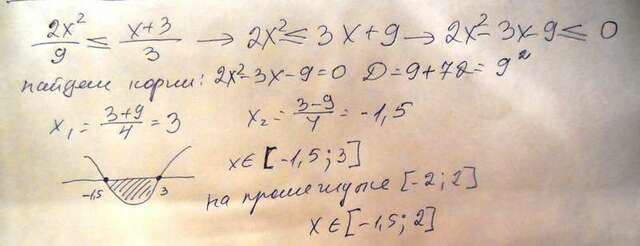 2x²/9 ≤ (x+3)/3 → 2x² ≤ 3x+9 → 2x²-3x-9 ≤ 0
найдем корни: 2x²-3x-9=0 D=9+72=9²
x₁=(3+9)/4=3 x₂=(3-9)/4=-1,5
x∈[-1,5;3]
-1,5 3
на промежутке [-2;2]
x∈[-1,5;2]